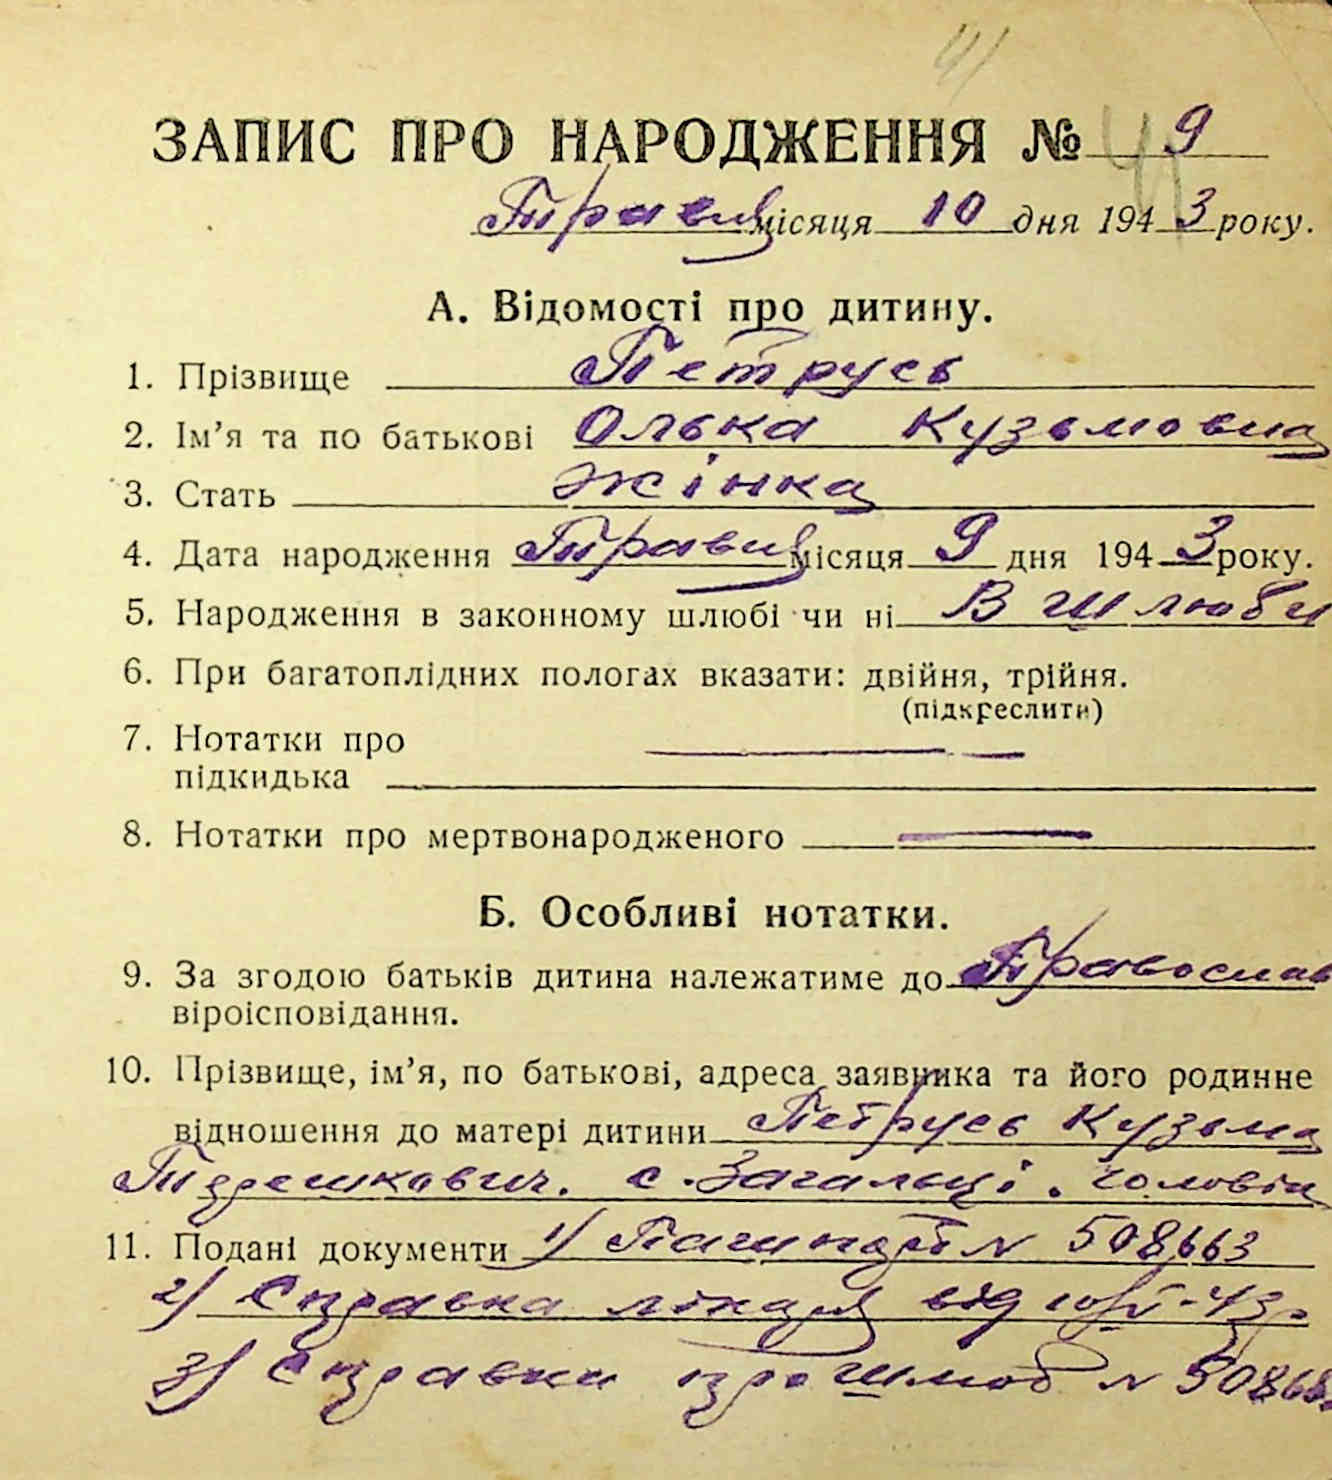 4)
ЗАПИС ПРО НАРОДЖЕННЯ № 9
Травня місяця 10 дня 1943 року.
А. Відомості про дитину.
1. Прізвище Петрусь
2. Ім’я та по батькові Олька Кузьмовна
3. Стать жінка
4. Дата народження Травня місяця 9 дня 1943 року.
5. Народження в законному шлюбі чи ні В шлюби
6. При багатоплідних пологах вказати: двійня, трійня.
(підкреслити)
7. Нотатки про
підкидька
8. Нотатки про мертвонародженого
Б. Особливі нотатки.
9. За згодою батьків дитина належатиме до Православ
віроісповідання.
10. Прізвище, ім’я, по батькові, адреса заявника та його родинне
відношення до матері дитини Петрусь Кузьма
с. Загальці. чоловік
11. Подані документи 1) Пашпорт № 508663
2) Справка лікаря від 10/V-43р
3) Справки про шлюб №